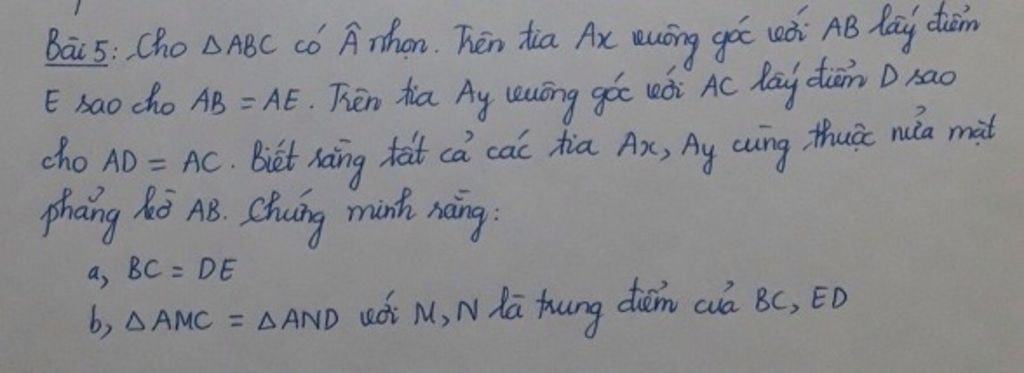 Bài 5: Cho △ABC có Â nhọn. Trên tia Ax vuông góc với AB lấy điểm
E sao cho AB = AE. Trên tia Ay vuông góc với AC lấy điểm D sao
cho AD = AC. Biết rằng tất cả các tia Ax, Ay cùng thuộc nửa mặt
phẳng bờ AB. Chứng minh rằng:
a, BC = DE
b, △AMC = △AND với M, N là trung điểm của BC, ED